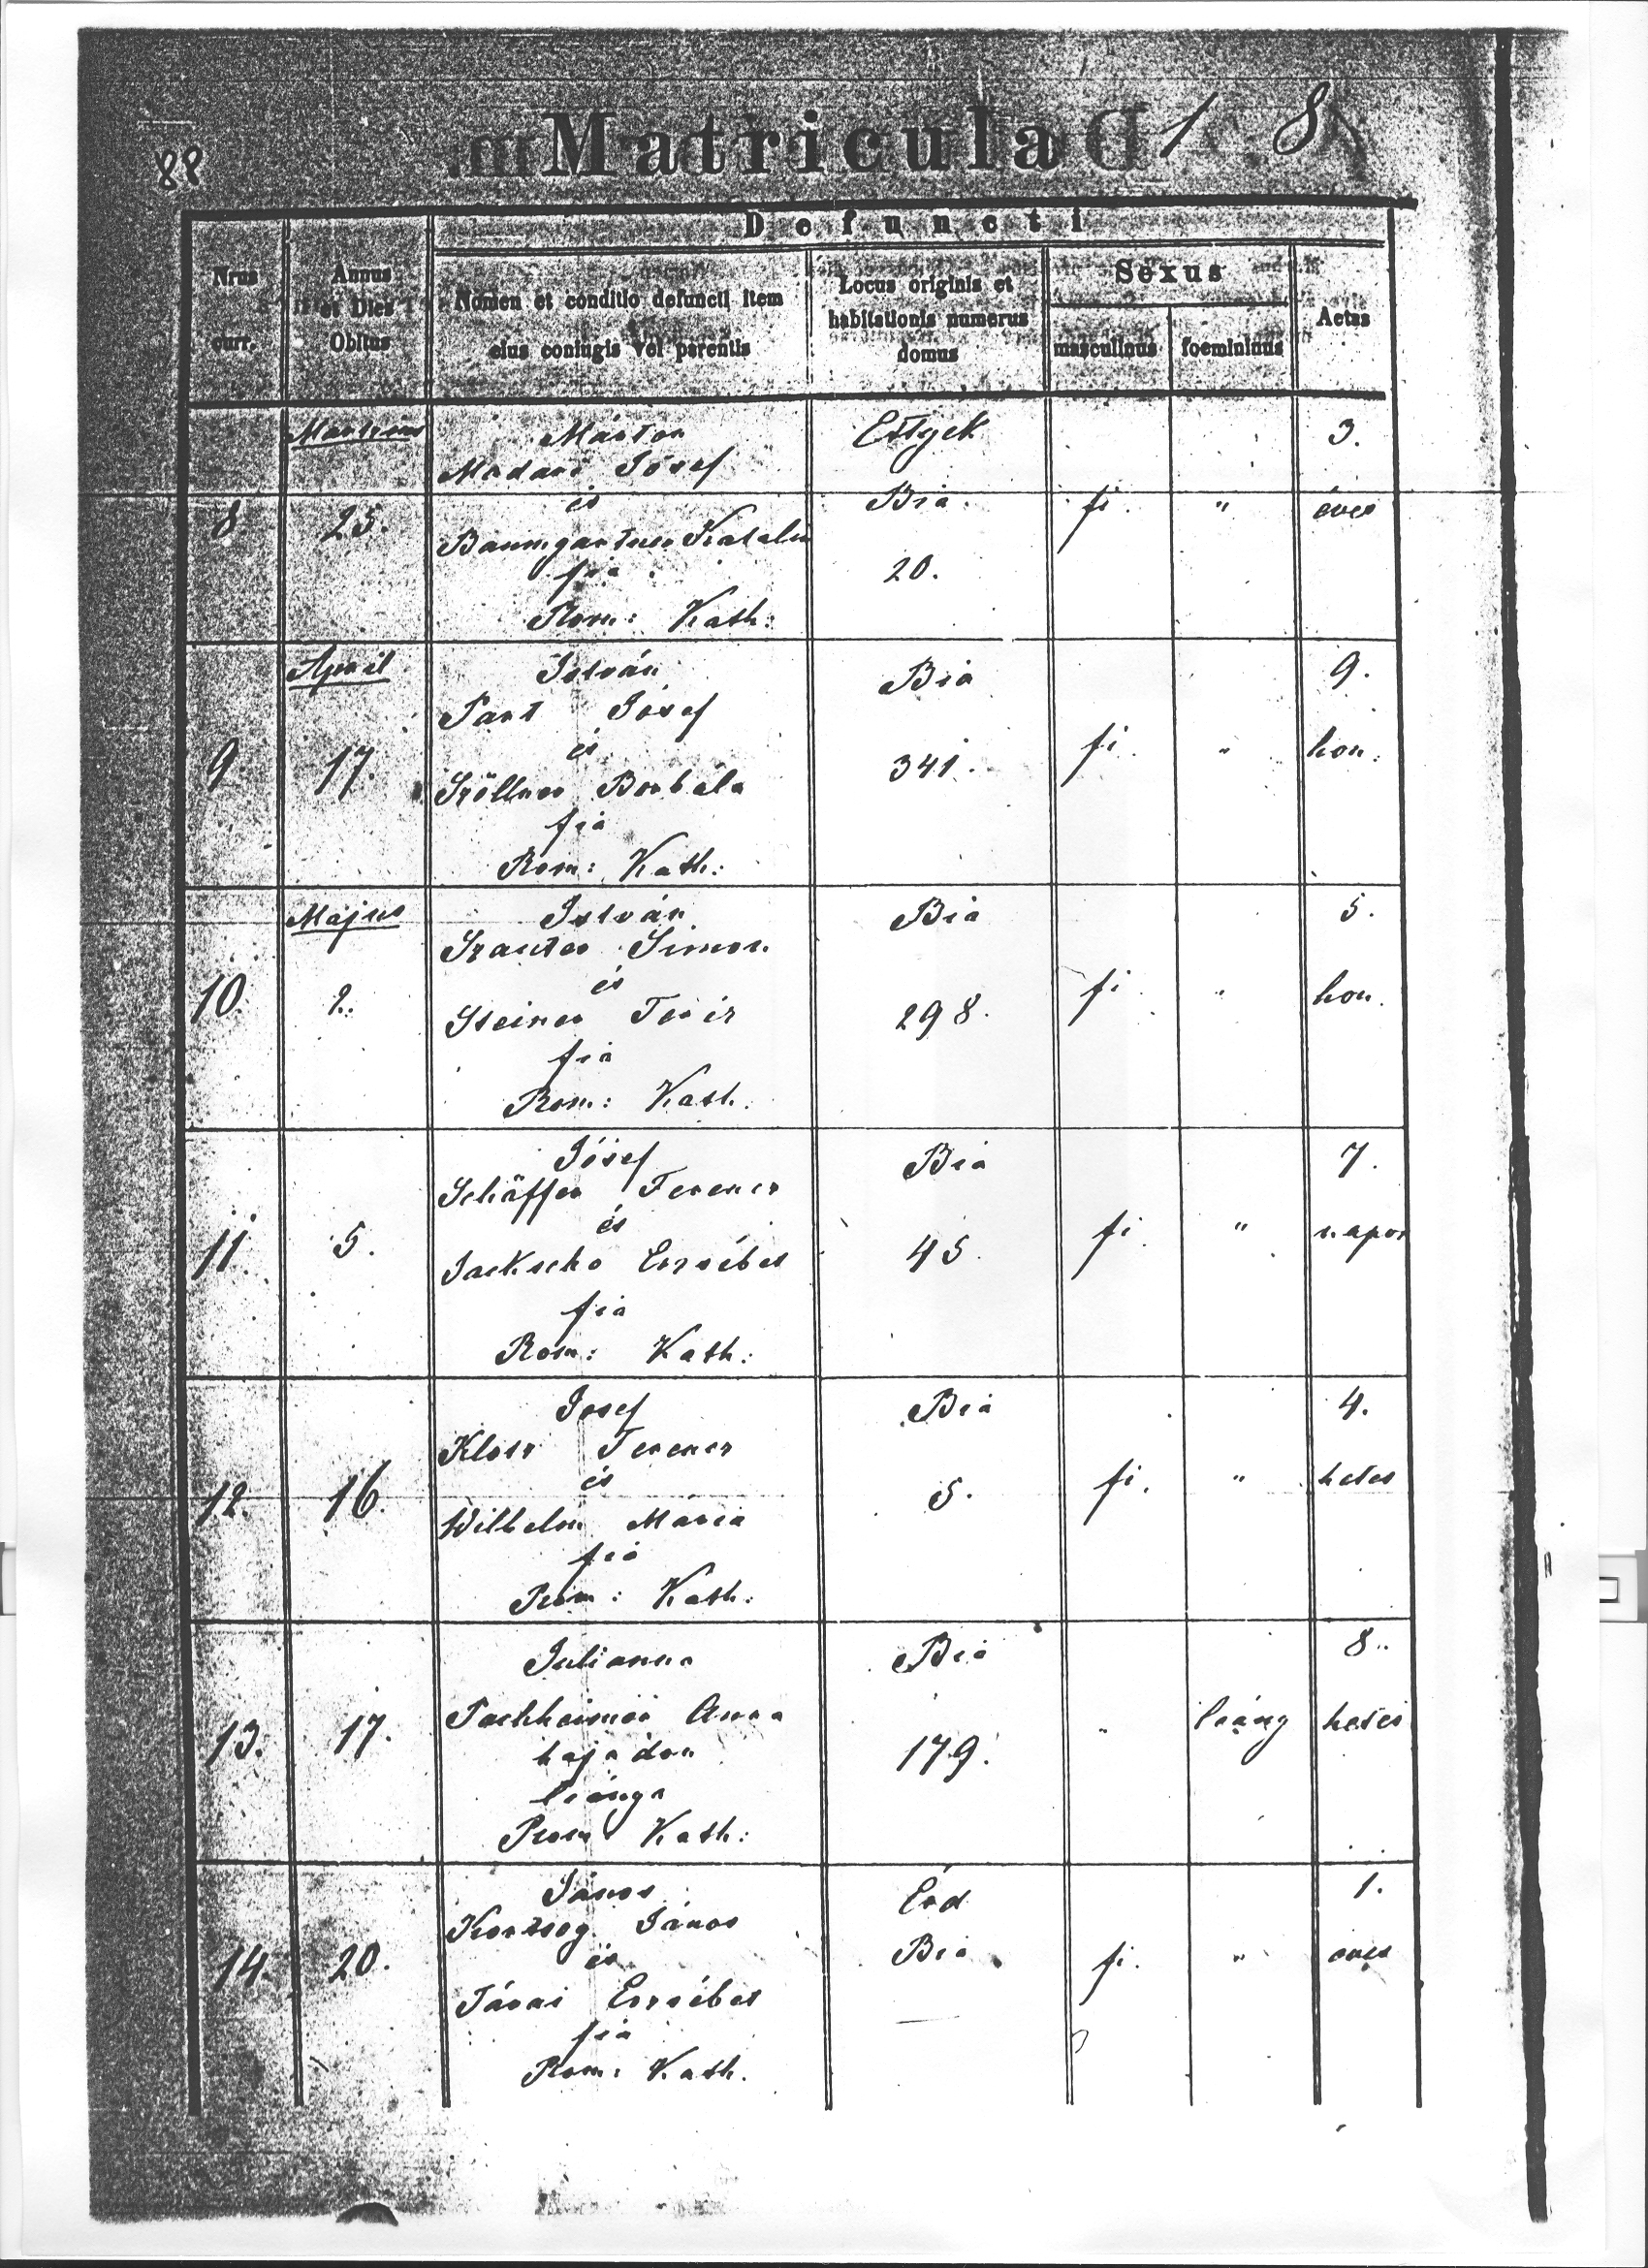 88
Matricula
1 8
Defuncti
Nrus
curr.
Annus
et Dies
Obitus
Nomen et conditio defuncti item
eius coniugis vel parentis
Locus originis et
habitationis numerus
domus
Sexus
masculinus
foemininus
Aetas
Martius
8
25.
Márton
Madari Jósef
és
Baumgartner Katalin
fia
Rom: Kath:
Etyek
Bia
20.
fi.
"
3.
éves
April
9
17.
István
Part Jósef
és
Szöllner Borbála
fia
Rom: Kath:
Bia
341.
fi.
"
9.
hón.
Május
10.
2.
István
Szauter Simon
és
Steiner Teréz
fia
Rom: Kath:
Bia
298.
fi
"
5.
hón.
11.
5.
Jósef
Schäffer Ferencz
és
Jackscho Erzsébet
fia
Rom: Kath:
Bia
45.
fi.
"
7.
napos
12.
16.
Josef
Klosz Ferencz
és
Wilhelm Mária
fia
Rom: Kath:
Bia
5.
fi.
"
4.
hetes
13.
17.
Julianna
Anna
hajadon
leánya
Rom Kath:
Bia
179.
"
leány
8.
hetes
14.
20.
János
Kertzog János
és
Tárai Erzsébet
fia
Rom: Kath.
Érd
Bia
fi.
"
1.
éves